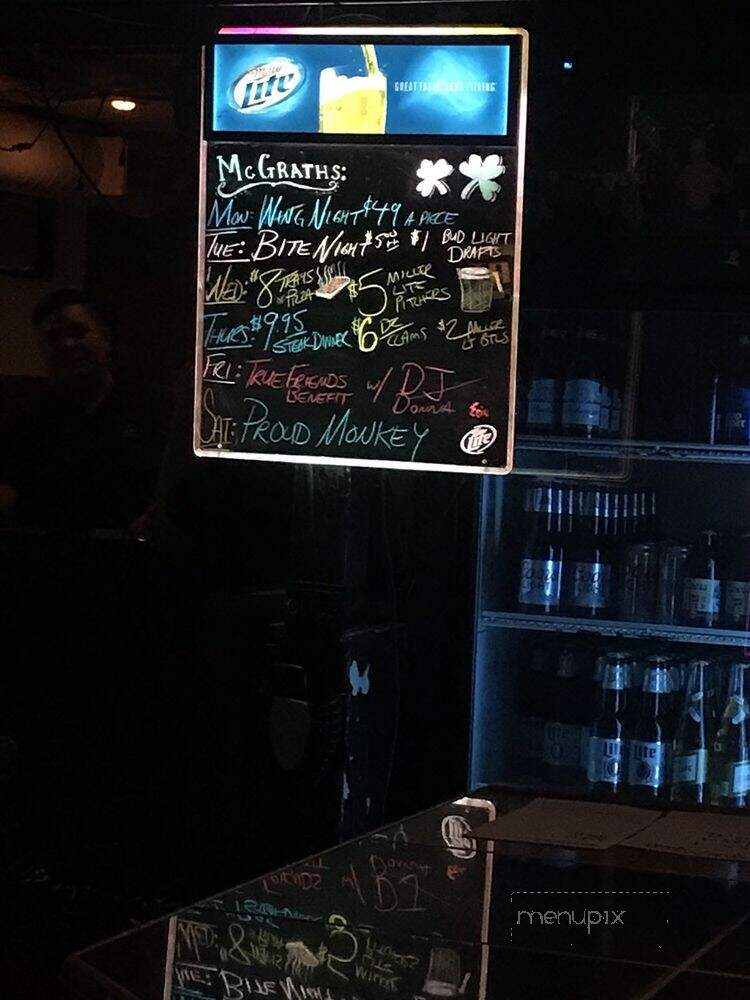 Miller
Lite
GREAT TASTE LESS FILLING
McGRATHS:
MON: WING NIGHT $.49 A PIECE
TUE: BITE NIGHT $5 $1 BUD LIGHT DRAFTS
WED: $8 TRAYS OF PIZZA $5 MILLER LITE PITCHERS
THURS: $9.95 STEAK DINNER $6 DZ CLAMS $2 MILLER LT BTLS
FRI: TRUE FRIENDS BENEFIT w/ DJ Donna
SAT: PROUD MONKEY
Lite
Lite
Lite
menupix